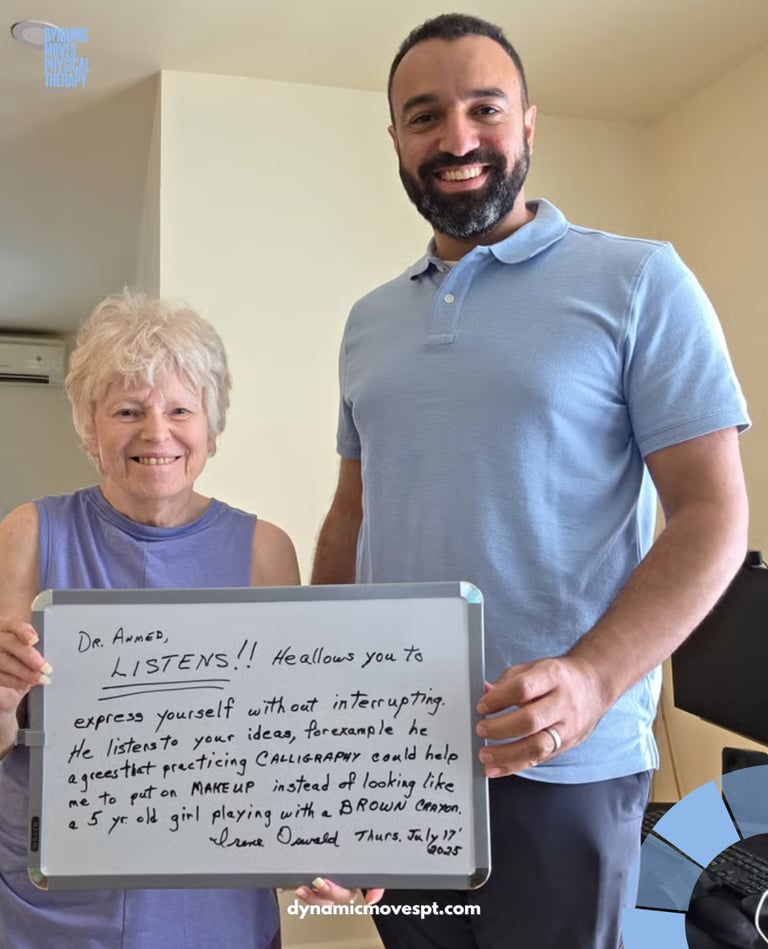 DYNAMIC
MOVES
PHYSICAL
THERAPY
DR. AHMED,
LISTENS!! He allows you to
express yourself without interrupting.
He listens to your ideas, for example he
agrees that practicing CALLIGRAPHY could help
me to put on MAKEUP instead of looking like
a 5 yr old girl playing with a BROWN CRAYON.
Irene Oswald Thurs. July 17'
2025
dynamicmovespt.com